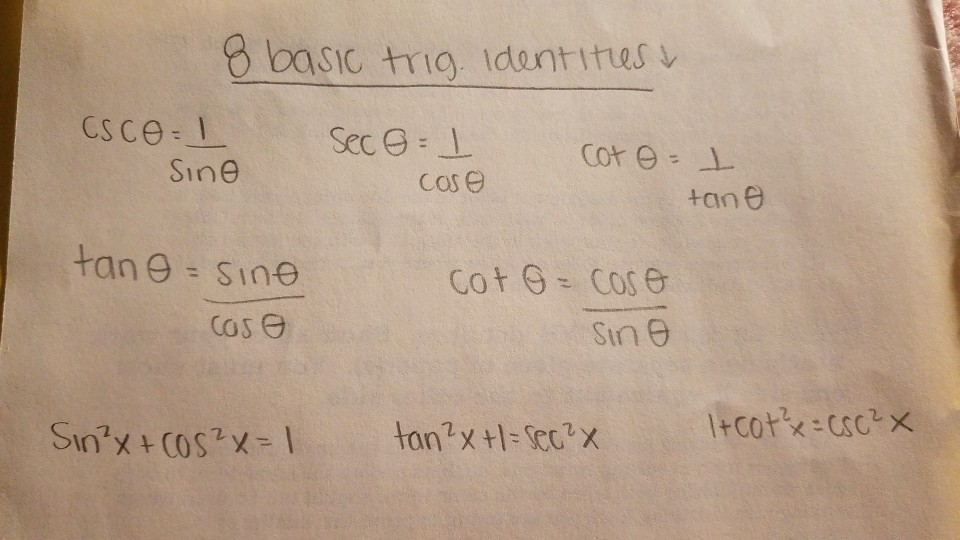 8 basic trig. identities ↓
cscθ = 1/sinθ secθ = 1/cosθ cotθ = 1/tanθ
tanθ = sinθ/cosθ cotθ = cosθ/sinθ
Sin²x + cos²x = 1 tan²x + 1 = sec²x 1 + cot²x = csc²x